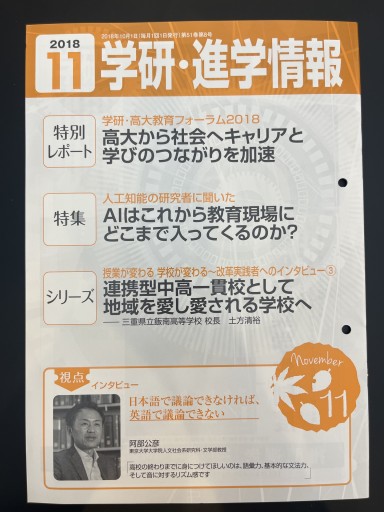 2018年10月1日(毎月1回1日発行)第51巻第8号
2018
11
学研・進学情報
特別
レポート
学研・高大教育フォーラム2018
高大から社会へキャリアと
学びのつながりを加速
特集
人工知能の研究者に聞いた
AIはこれから教育現場に
どこまで入ってくるのか?
シリーズ
授業が変わる 学校が変わる〜改革実践者へのインタビュー③
連携型中高一貫校として
地域を愛し愛される学校へ
── 三重県立飯南高等学校 校長 土方清裕
November
11
視点
インタビュー
日本語で議論できなければ、
英語で議論できない
阿部公彦
東京大学大学院人文社会系研究科・文学部教授
高校の終わりまでに身につけてほしいのは、語彙力、基本的な文法力、
そして音に対するリズム感です